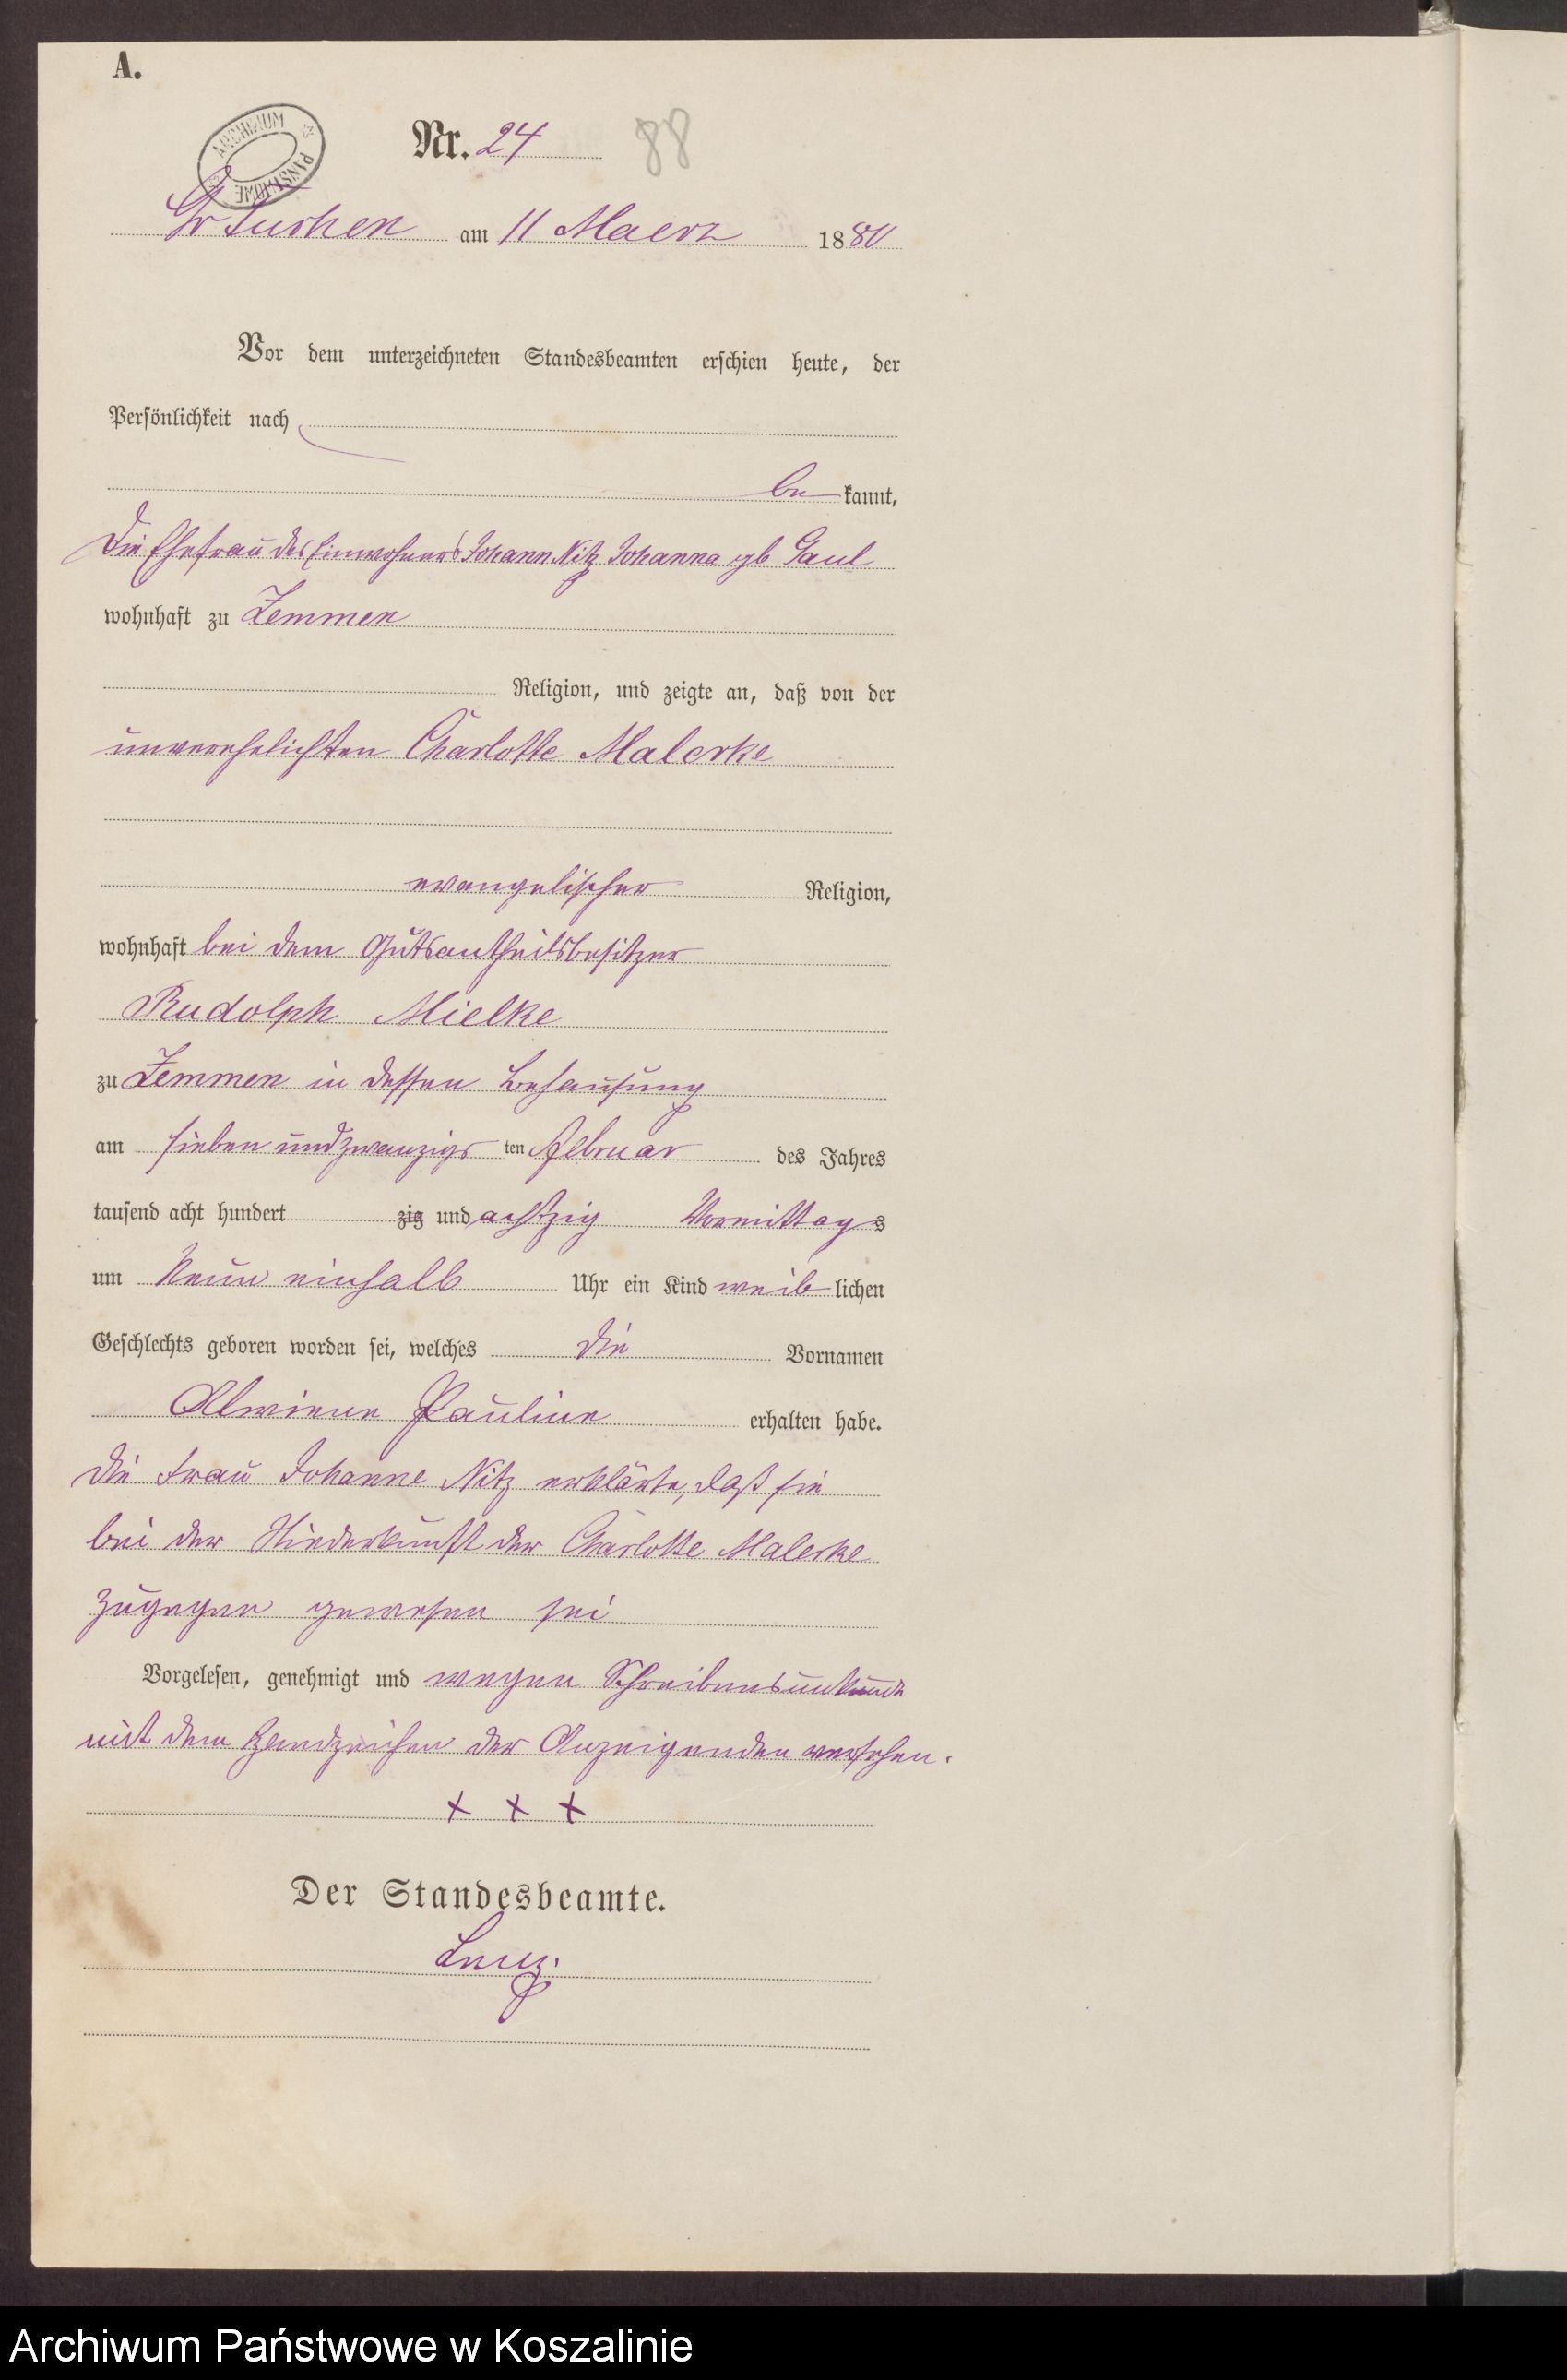 A.
ARCHIWUM PAŃSTWOWE
Nr. 24 88
Gr Tuchen am 11 Maerz 1880
Vor dem unterzeichneten Standesbeamten erschien heute, der
Persönlichkeit nach
be kannt,
die Ehefrau des Einwohners Johann Nitz Johanna gb Gaul
wohnhaft zu Zemmen
Religion, und zeigte an, daß von der
unverehelichten Charlotte Maleske
evangelischer Religion,
wohnhaft bei dem Gutsantheilsbesitzer
Rudolph Mielke
zu Zemmen in dessen Behausung
am sieben und zwanzigs ten Februar des Jahres
tausend acht hundert zig und achtzig Vormittags
um Neun einhalb Uhr ein Kind weib lichen
Geschlechts geboren worden sei, welches die Vornamen
Alwiene Pauline erhalten habe.
Die Frau Johanne Nitz erklärte, daß sie
bei der Niederkunft der Charlotte Maleske
zugegen gewesen sei
Vorgelesen, genehmigt und wegen Schreibensunkunde
mit dem Handzeichen der Anzeigenden versehen.
+ + +
Der Standesbeamte.
Archiwum Państwowe w Koszalinie